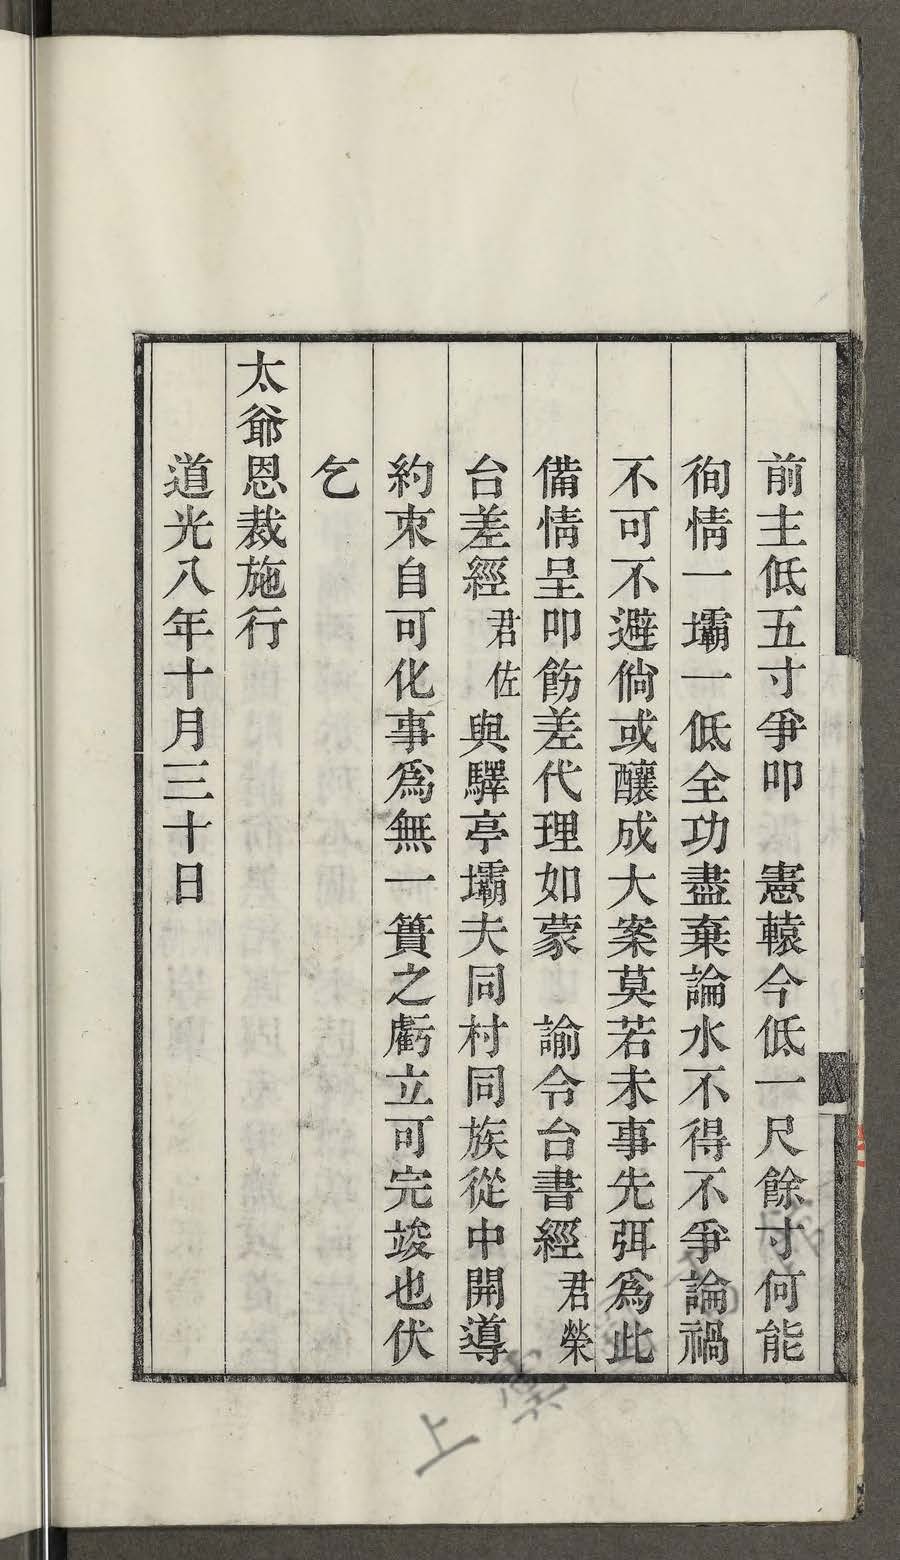 前主低五寸爭叩　憲轅今低一尺餘寸何能
徇情一壩一低全功盡棄論水不得不爭論禍
不可不避倘或釀成大案莫若未事先弭為此
備情呈叩飭差代理如蒙　諭令台書經君榮
台差經君佐與驛亭壩夫同村同族從中開導
約束自可化事為無一簣之虧立可完竣也伏
乞
太爺恩裁施行
道光八年十月三十日